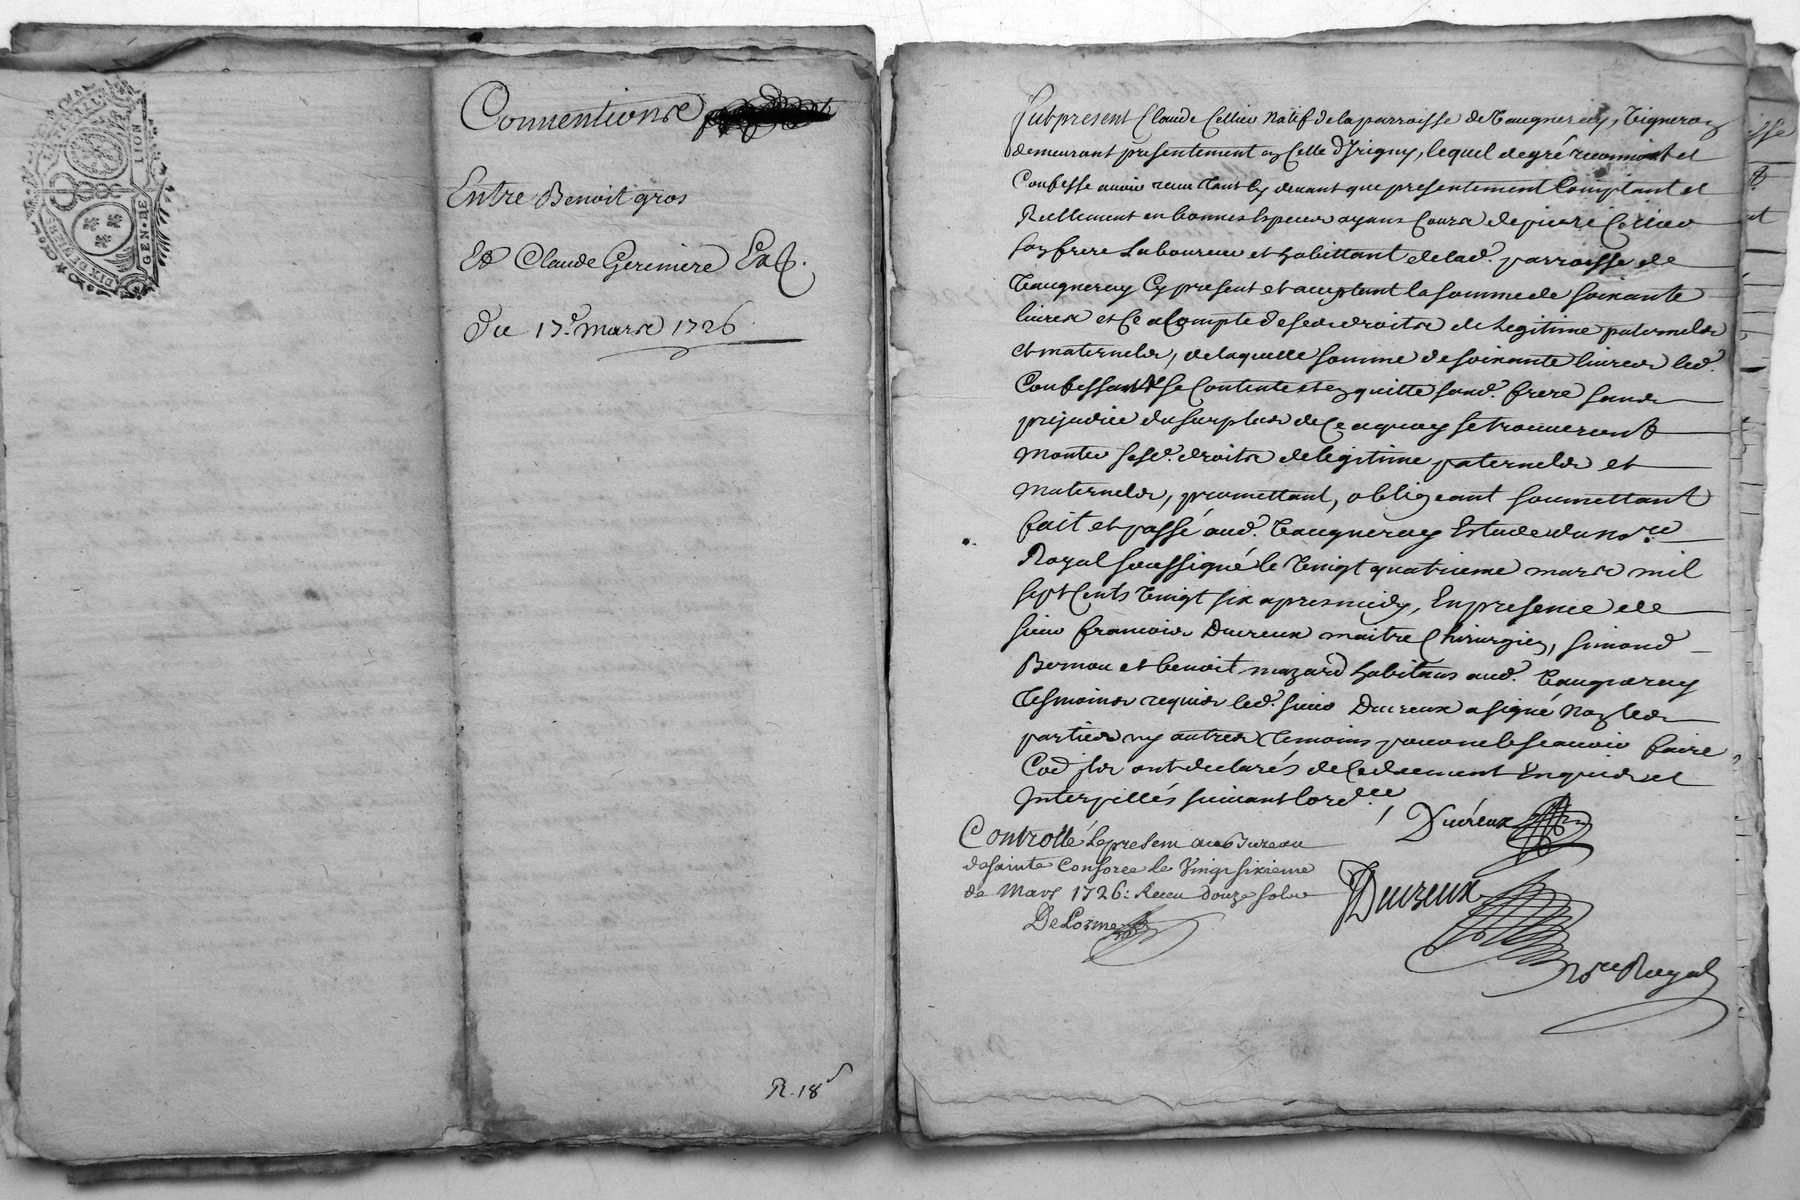 GEN · DE LION
Conuentions
Entre Benoit gros
Et Claude Geremiere
Du 17.e mars 1726
R. 18 s
fut present Claude Cellier Natif de la parroisse de Vaugneray, Vigneron
demeurant presentement en Celle d'Irigny, lequel de gré reconnoit et
Confesse auoir receu tant Cy deuant que presentement Comptant et
Reellement en bonnes Especes ayans Cours de pierre Cellier
son frere Laboureur et habittant de lad. parroisse de
Vaugneray Cy present et acceptant la somme de soixante
liures et Ce a Compte de ses droits de legitime paternels
et maternels, de laquelle somme de soixante liures led.
Confessant se Contente et en quitte sond. frere sans
prejudice du surplus de Ce a quoy se trouueront
monter sesd. droits de legitime paternels et
maternels, promettant, obligeant soumettant
fait et passé aud. Vaugneray Estude du no.re
Royal soussigné le Vingt quatrieme mars mil
sept Cents Vingt six apres midy, En presence de
sieur francois Ducreux maitre Chirurgien, simond
Bernou et benoit mazard habitans aud. Vaugneray
Tesmoins requis led. sieur Ducreux a signé Non les
parties ny autres temoins pour ne le scauoir faire
ont declarés de Ce deument Enquis et
Interpellés suiuant lord.ce
Ducreux
Controllé le present au Bureau
de sainte Consorce le Vingt sixieme
de Mars 1726: Receu douze sols
DeLorme
Ducreux
No.re Royal